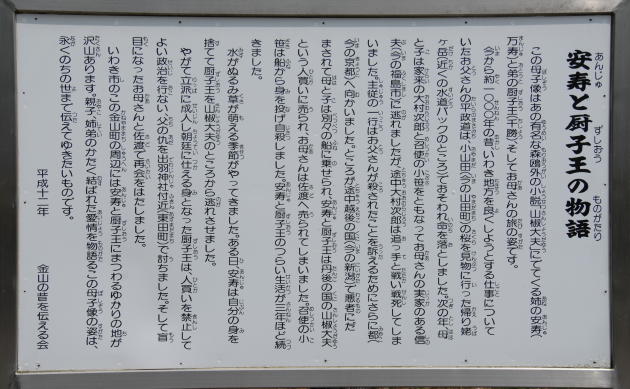 安寿と厨子王の物語
あんじゅ ずしおう ものがたり
この母子像はあの有名な森鴎外の小説「山椒大夫」にでてくる姉の安寿(
万寿)と弟の厨子王(千勝)、そしてお母さんの旅の姿です。
今から約一〇〇〇年の昔、いわき地方を良くしようとする仕事について
いたお父さんの平政道は、小山田(今の山田町)の桜を見物に行った帰り姥
ヶ岳近く(の水道バックのところ)でおそわれ命を落としました。次の年、母
と子は家来の大村次郎と召使の小笹をともなってお母さんの実家のある信
夫(今の福島市)に逃れましたが、途中大村次郎は追っ手と戦い戦死してしま
いました。主従の一行はお父さんが殺されたことを訴えるためにさらに都へ
(今の京都)へ向かいました。ところが途中越後の国(今の新潟)で悪者にだ
まされて母と子は別々の船に乗せられ、安寿と厨子王は丹後の国の山椒大夫
という人買いに売られ、お母さんは佐渡へ売られてしまいました。召使の小
笹は船から身を投げ自殺しました。安寿と厨子王のつらい生活が三年ほど続
きました。
水がぬるみ草が萌える季節がやってきました。ある日、安寿は自分の身を
捨てて厨子王を山椒大夫のところから逃れさせました。
やがて立派に成人し朝廷に仕える身となった厨子王は、人買いを禁止して
よい政治を行ない、父の仇を出羽神社付近(東田町)で討ちました。そして盲
目になったお母さんと佐渡で再会をはたしました。
いわき市のこの金山町の周辺には安寿と厨子王にまつわるゆかりの地が
沢山あります。親子、姉弟のかたく結ばれた愛情を物語る、この母子像の姿は、
永くのちの世まで伝えてゆきたいものです。
平成十二年 金山の昔を伝える会